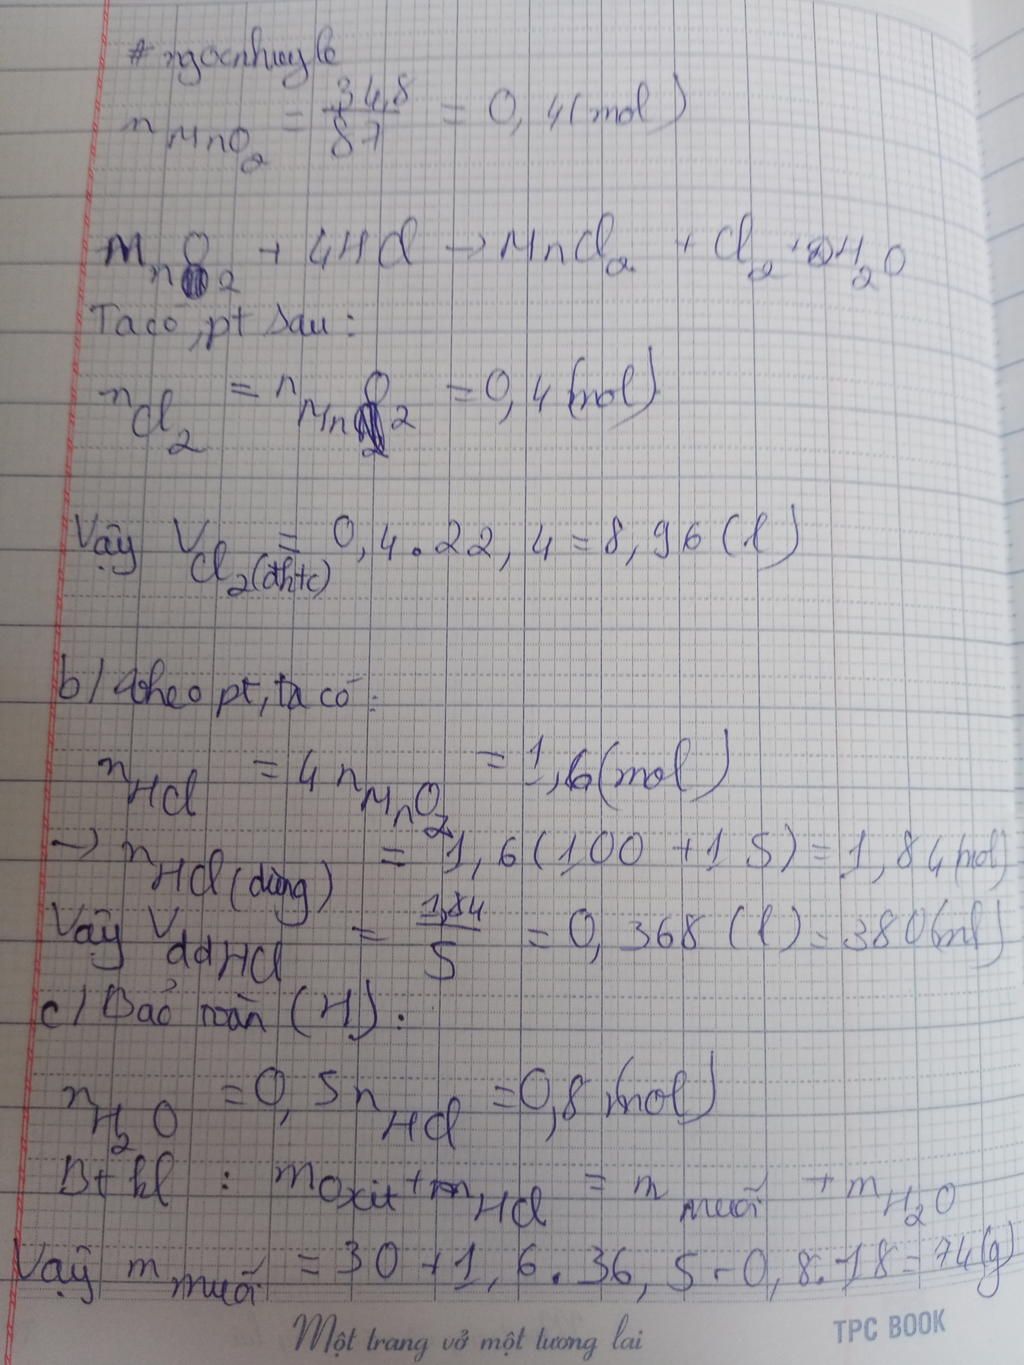 # ngocnhuy
n MnO2 = 34,8/87 = 0,4 (mol)
MnO2 + 4HCl → MnCl2 + Cl2 + 2H2O
Ta có, pt sau:
n Cl2 = n MnO2 = 0,4 (mol)
Vậy V Cl2 (đktc) = 0,4 . 22,4 = 8,96 (l)
b/ theo pt, ta có:
n HCl = 4 n MnO2 = 1,6 (mol)
→ n HCl (dùng) = 1,6 (100 + 15) = 1,84 (mol)
Vậy V dd HCl = 1,84/5 = 0,368 (l) = 380 (ml)
c/ Bảo toàn (H):
n H2O = 0,5 n HCl = 0,8 (mol)
Bt kl : m oxit + m HCl = m muối + m H2O
Vậy m muối = 30 + 1,6 . 36,5 - 0,8 . 18 = 74 (g)
Một trang vở một tương lai
TPC BOOK